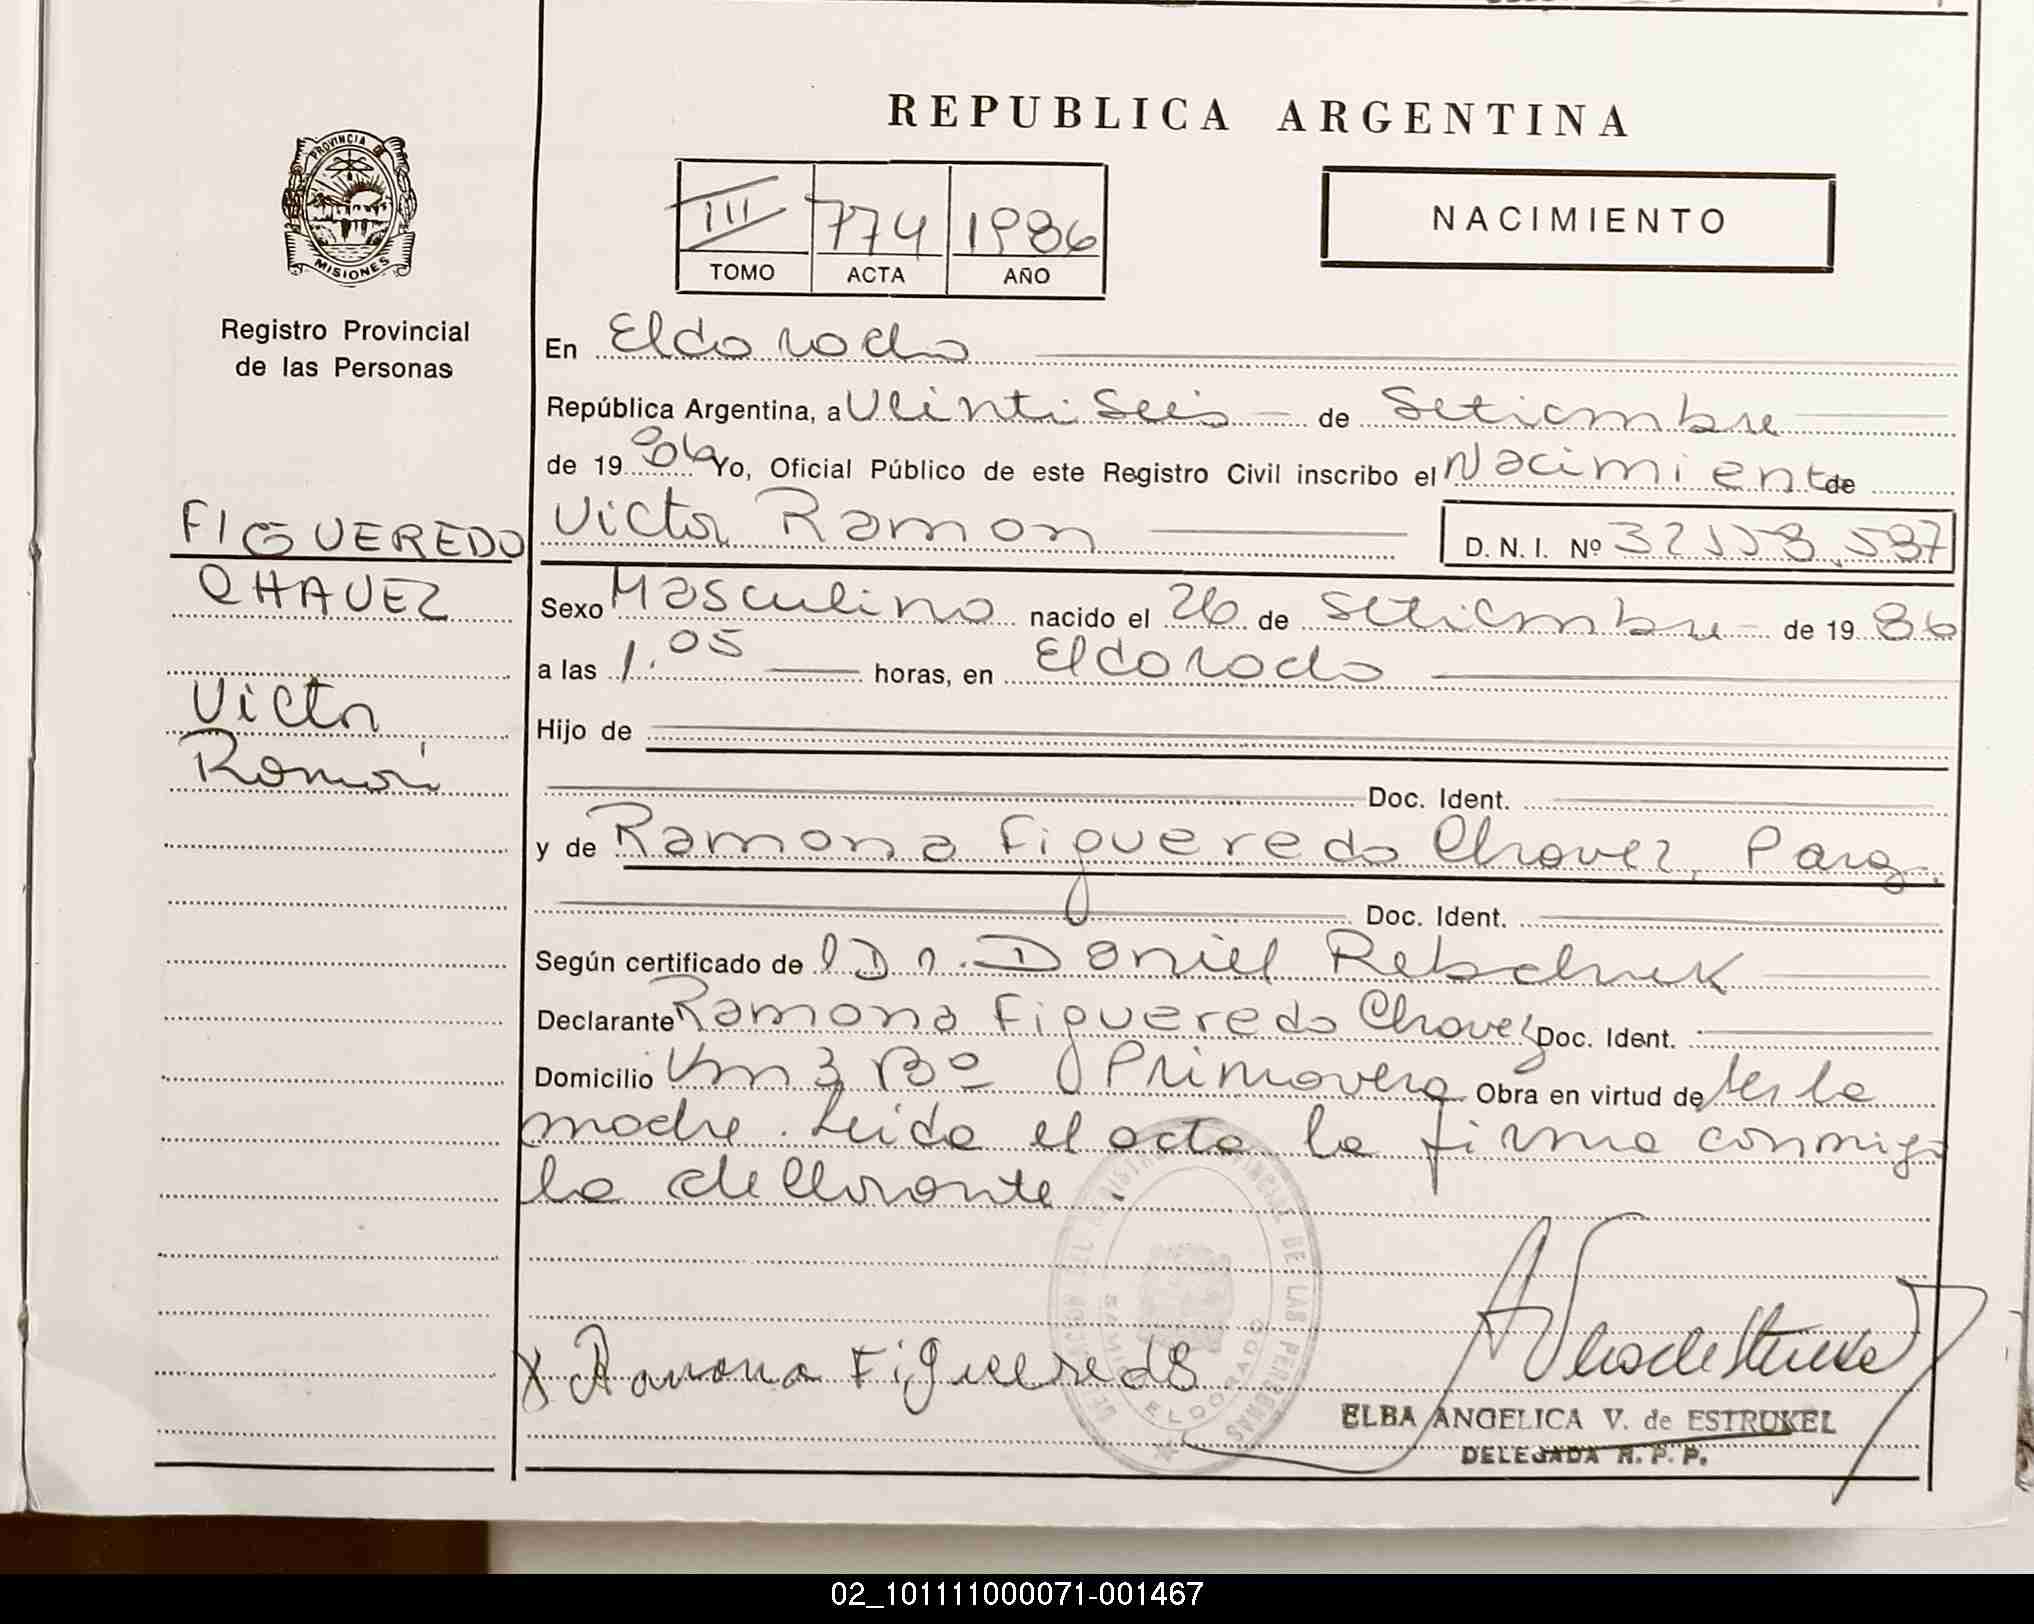 REPUBLICA ARGENTINA
PROVINCIA DE
MISIONES
Registro Provincial
de las Personas
III 774 1986
TOMO ACTA AÑO
NACIMIENTO
FIGUEREDO
CHAVEZ
Victor
Ramón
En Eldorado
República Argentina, a Veintiseis de Setiembre
de 19 86 Yo, Oficial Público de este Registro Civil inscribo el Nacimiento de
Victor Ramon D. N. I. Nº
Sexo Masculino nacido el 26 de Setiembre de 19 86
a las 1.05 horas, en Eldorado
Hijo de
Doc. Ident.
y de Ramona Figueredo Chavez, Parag.
Doc. Ident.
Según certificado de Dr. Daniel
Declarante Ramona Figueredo Chavez Doc. Ident.
Domicilio Km 3 Bº Primavera Obra en virtud de ser la
madre. Leida el acta la firma conmigo
la declarante.
X Ramona Figueredo
ELDORADO
ELBA ANGELICA V. de ESTRUKEL
DELEGADA R. P. P.
02_101111000071-001467